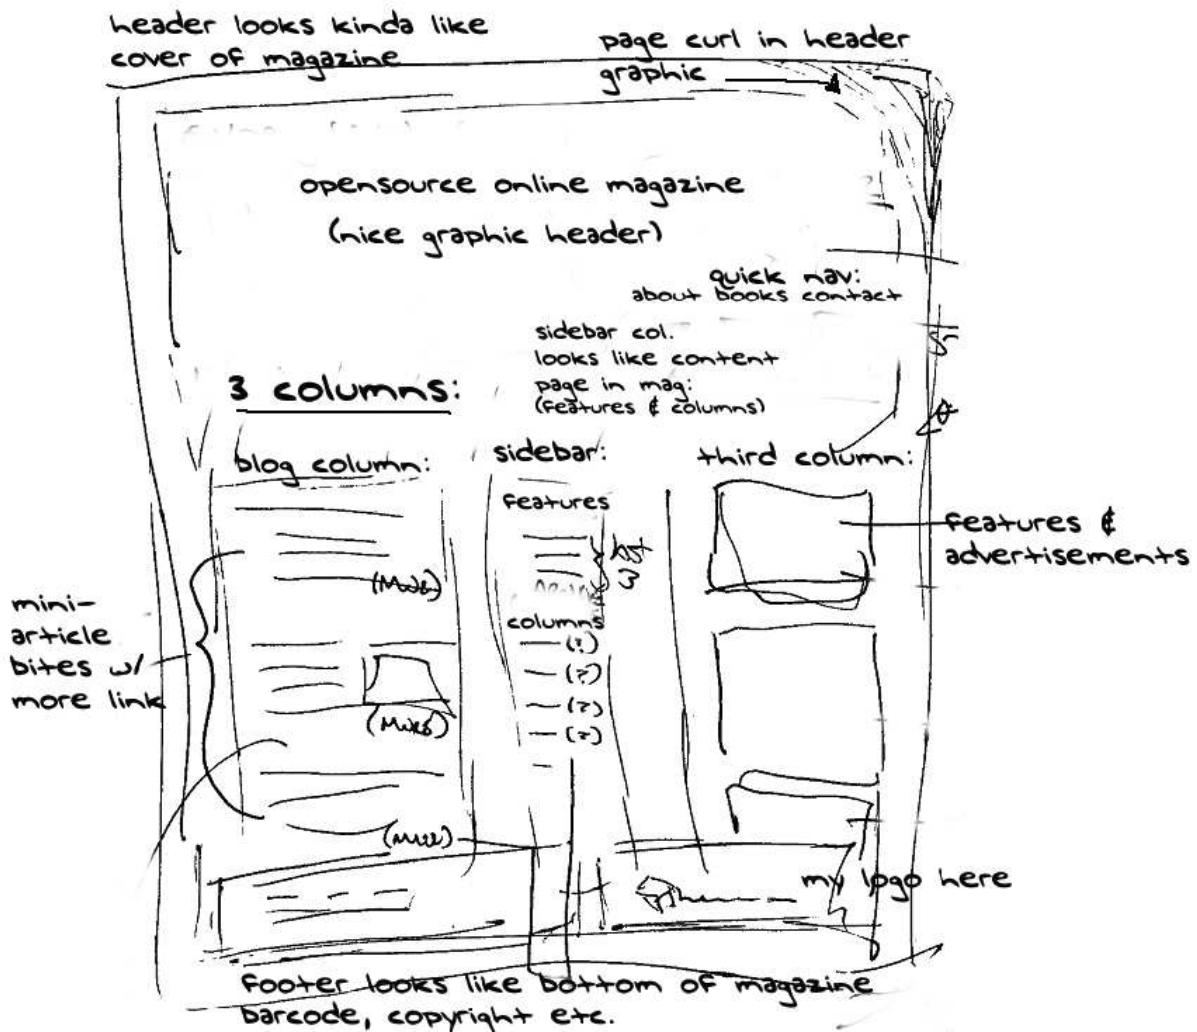 header looks kinda like
cover of magazine
page curl in header
graphic
opensource online magazine
(nice graphic header)
quick nav:
about books contact
sidebar col.
looks like content
page in mag:
(features & columns)
3 columns:
blog column:
sidebar:
third column:
features
features &
advertisements
mini-
article
bites w/
more link
columns
(?)
(?)
(?)
(?)
my logo here
footer looks like bottom of magazine
barcode, copyright etc.